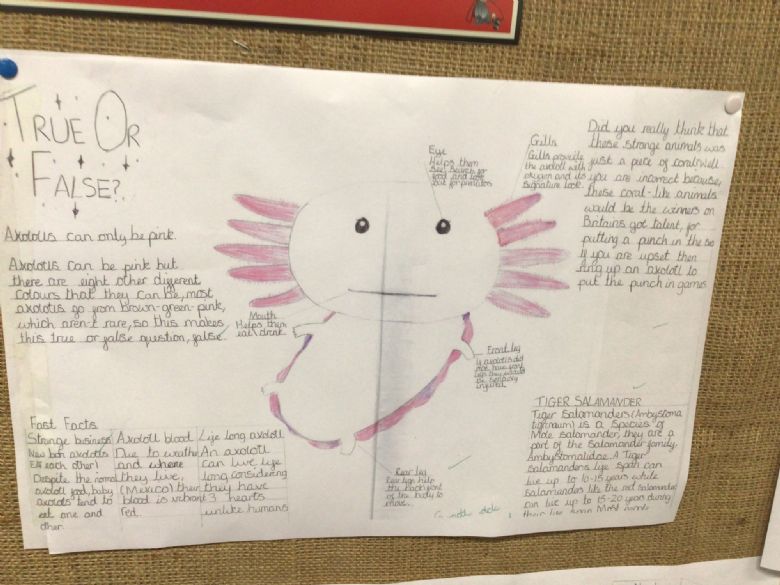 TRUE OR
FALSE?
Axolotls can only be pink.
Axolotls can be pink but
there are eight other different
colours that they can be, most
axolotls go from brown-green-pink,
which aren't rare, so this makes
this true or false question, false.
Eye
Helps them
see, search for
food and look
out for predators
Gills
Gills provide
the axolotl with
oxygen and its
signature look.
Did you really think that
these strange animals was
just a piece of coral? Well
you are incorrect because
these coral-like animals
would be the winners on
Britains got talent, for
putting a punch in the
If you are upset then
ring up an axolotl to
put the punch in games
Mouth
Helps them
eat/drink
Front leg
If axolotls did
not have front
legs they would
be seriously
injured.
Rear leg
Rear legs help
the back part
of the body to
move.
Fast Facts
Strange business
New born axolotls
Eat each other!
Despite the normal
axolotl food, baby
axolotls tend to
eat one and
other.
Axolotl blood
Due to weather
and where
they live,
(Mexico) their
blood is vibrant
red.
Life long axolotl
An axolotl
can live life
long, considering
they have
3 hearts
unlike humans
TIGER SALAMANDER
Tiger salamanders (Ambystoma
tigrinum) is a species of
Mole salamander, they are a
part of the salamander family,
Ambystomatidae. A Tiger
salamanders life span can
live up to 10-15 years while
salamanders like the red salamander
can live up to 15-20 years during
their life span. Most